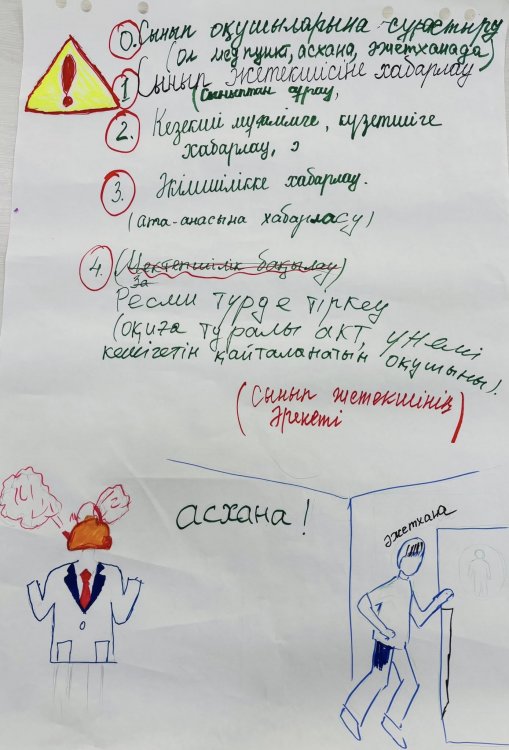 0. Сынып оқушыларына сұрастыру
(ол медпункт, асхана, әжетханада)
1 Сынып жетекшісіне хабарлау
(Сыныптан сұрау,
2. Кезекші мұғалімге, күзетшіге
хабарлау,
3. Әкімшілікке хабарлау.
(ата-анасына хабарласу)
4. (Мектепшілік бақылау)
За
Ресми түрде тіркеу
(оқиға туралы акт, үнемі
кешігетін қайталанатын оқушыны).
(Сынып жетекшінің
әрекеті)
асхана!
әжетхана